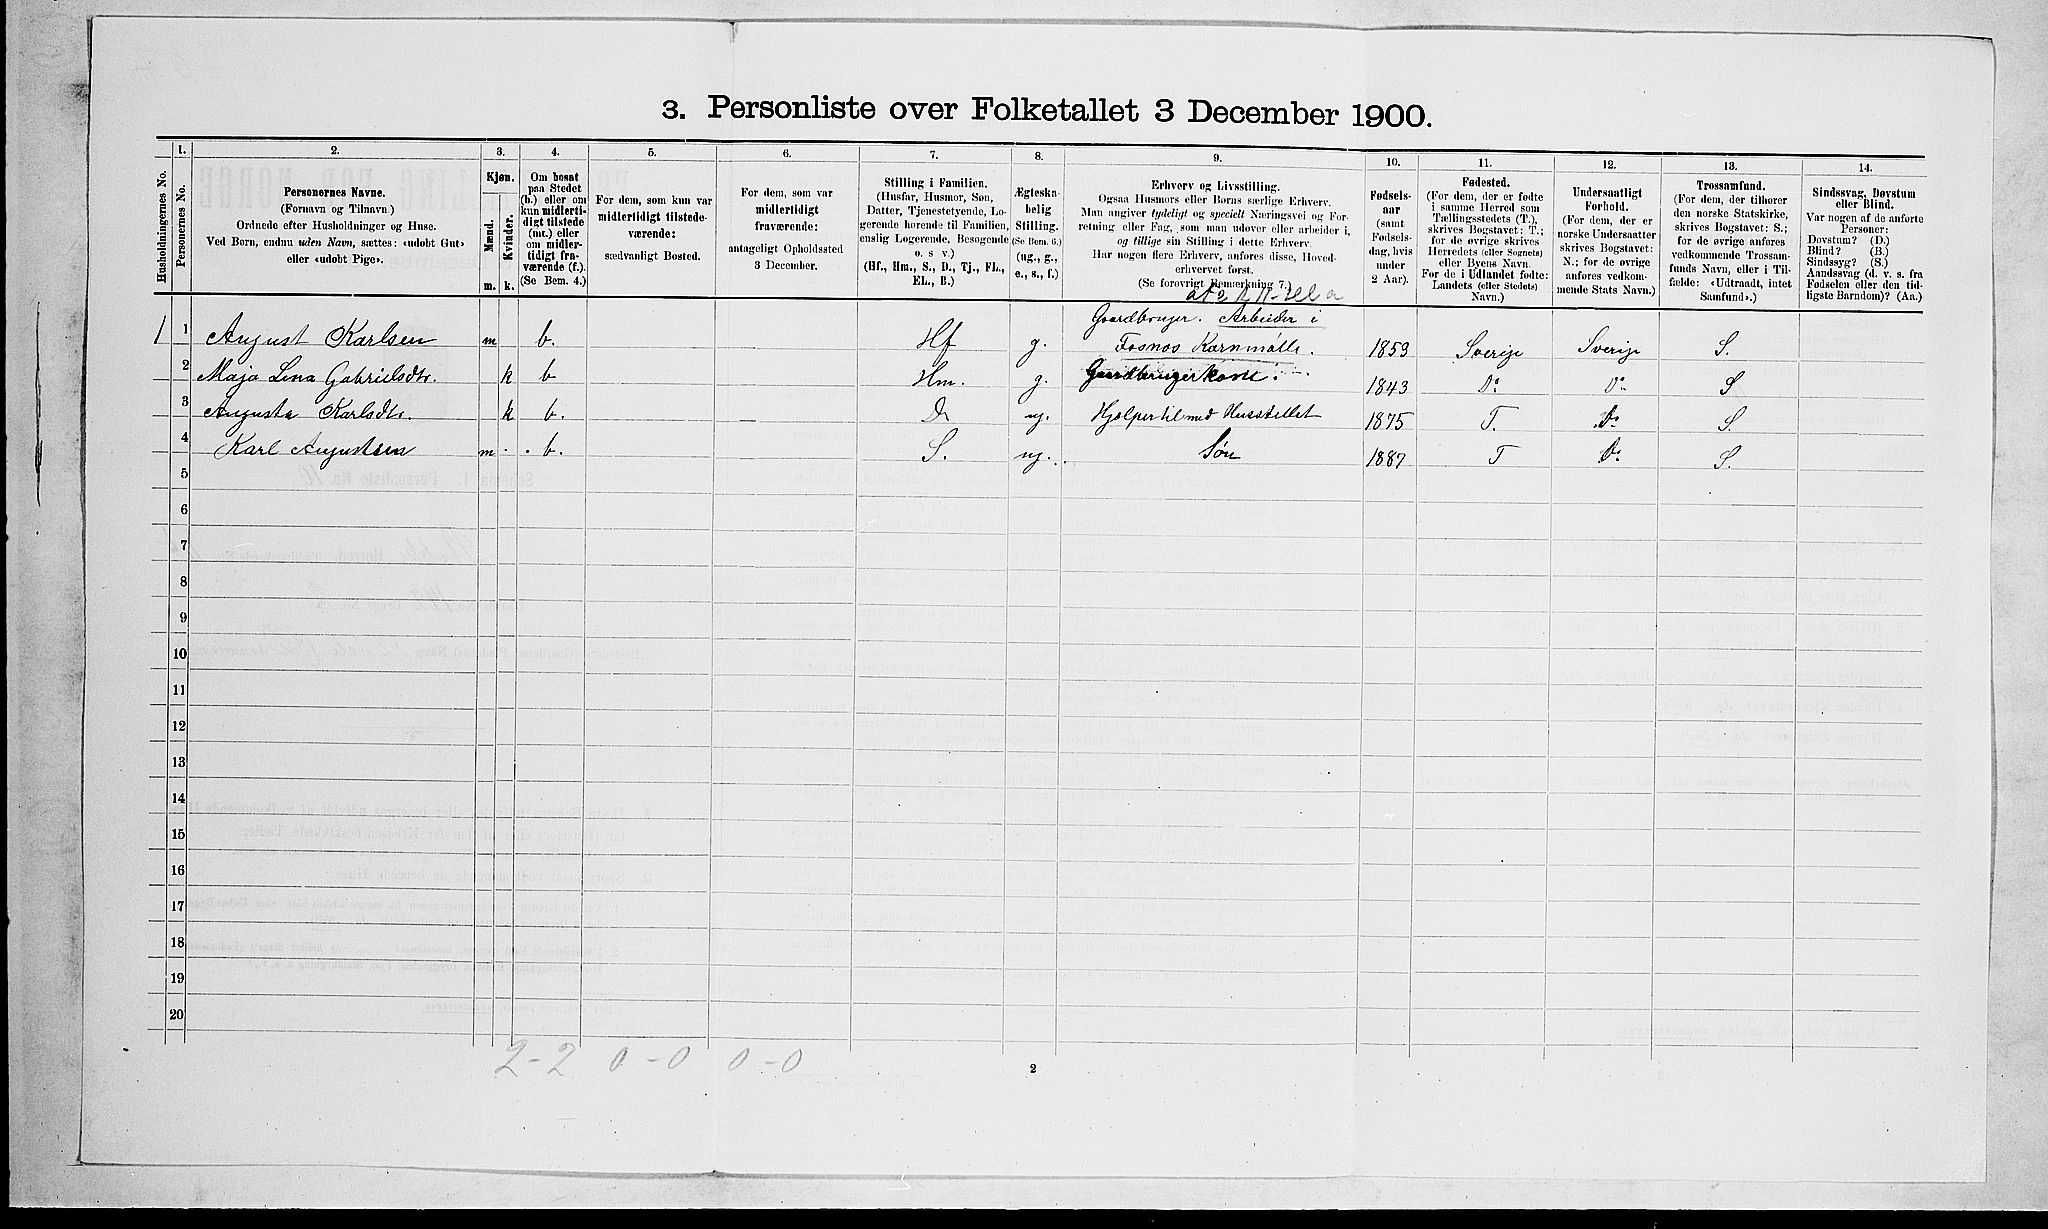 3. Personliste over Folketallet 3 December 1900.
1. 2. 3. 4. 5. 6. 7. 8. 9. 10. 11. 12. 13. 14.
Husholdningernes No.
Personernes No.
Personernes Navne.
(Fornavn og Tilnavn.)
Ordnede efter Husholdninger og Huse.
Ved Børn, endnu uden Navn, sættes: «udøbt Gut»
eller «udøbt Pige».
Kjøn.
Mænd.
Kvinder.
m. k.
Om bosat
paa Stedet
(b.) eller om
kun midlerti-
digt tilstede
(mt.) eller
om midler-
tidigt fra-
værende (f.).
(Se Bem. 4.)
For dem, som kun var
midlertidigt tilstede-
værende:
sædvanligt Bosted.
For dem, som var
midlertidigt
fraværende:
antageligt Opholdssted
3 December.
Stilling i Familien.
(Husfar, Husmor, Søn,
Datter, Tjenestetyende, Lo-
gerende hørende til Familien,
enslig Logerende, Besøgende
o. s. v.)
(Hf., Hm., S., D., Tj., FL.,
EL., B.)
Ægteska-
belig
Stilling.
(Se Bem. 6.)
(ug., g.,
e., s., f.)
Erhverv og Livsstilling.
Ogsaa Husmors eller Børns særlige Erhverv.
Man angiver tydeligt og specielt Næringsvei og For-
retning eller Fag, som man udøver eller arbeider i,
og tillige sin Stilling i dette Erhverv.
Har nogen flere Erhverv, anføres disse, Hoved-
erhvervet først.
(Se forøvrigt Bemærkning 7.)
Fødsels-
aar
(samt
Fødsels-
dag, hvis
under
2 Aar).
Fødested.
(For dem, der er fødte
i samme Herred som
Tællingsstedets (T.),
skrives Bogstavet: T.;
for de øvrige skrives
Herredets (eller Sognets)
eller Byens Navn.
For de i Udlandet fødte:
Landets (eller Stedets)
Navn.)
Undersaatligt
Forhold.
(For dem, der er
norske Undersaatter
skrives Bogstavet:
N.; for de øvrige
anføres vedkom-
mende Stats Navn.)
Trossamfund.
(For dem, der tilhører
den norske Statskirke,
skrives Bogstavet: S.;
for de øvrige anføres
vedkommende Trossam-
funds Navn, eller i Til-
fælde: «Udtraadt, intet
Samfund».)
Sindssvag, Døvstum
eller Blind.
Var nogen af de anførte
Personer:
Døvstum? (D.)
Blind? (B.)
Sindssyg? (S.)
Aandssvag (d. v. s. fra
Fødselen eller den tid-
ligste Barndom)? (Aa.)
1 1 August Karlsen m b. Hf g. Gaardbruger. Arbeider i
Fosnos Kornmølle. 1859 Sverige Sverige S.
2 Maja Lena Gabrielsdtr. k b Hm. g. Gaardbrugerkone. 1843 Do Do S
3 Augusta Karlsdtr. k b. D ug. Hjælper til med Husstellet 1875 T. Do S.
4 Karl Augustsen m b. S. ug. Søn 1887 T Do S.
5
6
7
8
9
10
11
12
13
14
15
16
17
18
19
20
2-2 0-0 0-0
2